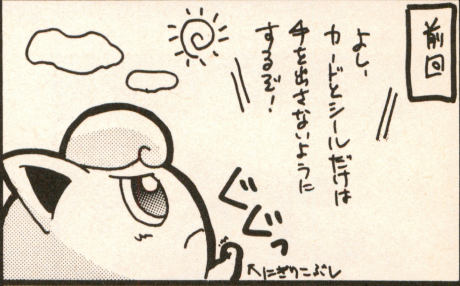 前回
よし、
カードとシールだけは
手を出さないように
するぞ！
ぐぐっ
↖にぎりこぶし